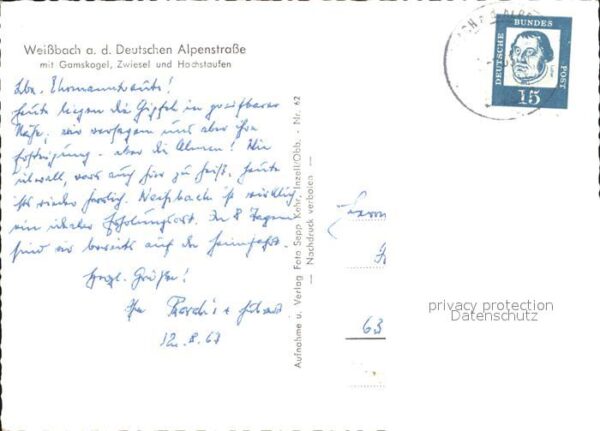 Weißbach a. d. Deutschen Alpenstraße
mit Gamskogel, Zwiesel und Hochstaufen
Lbe. Ehrmanntraut's!
Heute liegen die Gipfel in greifbarer
Nähe, wir versagen uns aber ihre
Besteigung. aber die Almen! Wie
überall, war's auch hier zu heiß, heute
ist's wieder herrlich. Weißbach ist wirklich
ein idealer Erholungsort. In 8 Tagen
sind wir bereits auf der Heimfahrt.
Herzl. Grüße!
Ihre
12. 8. 63
Aufnahme u. Verlag Foto Sepp Kehr, Inzell/Obb. - Nr. 62
— Nachdruck verboten —
63
DEUTSCHE
BUNDES
POST
15
privacy protection
Datenschutz